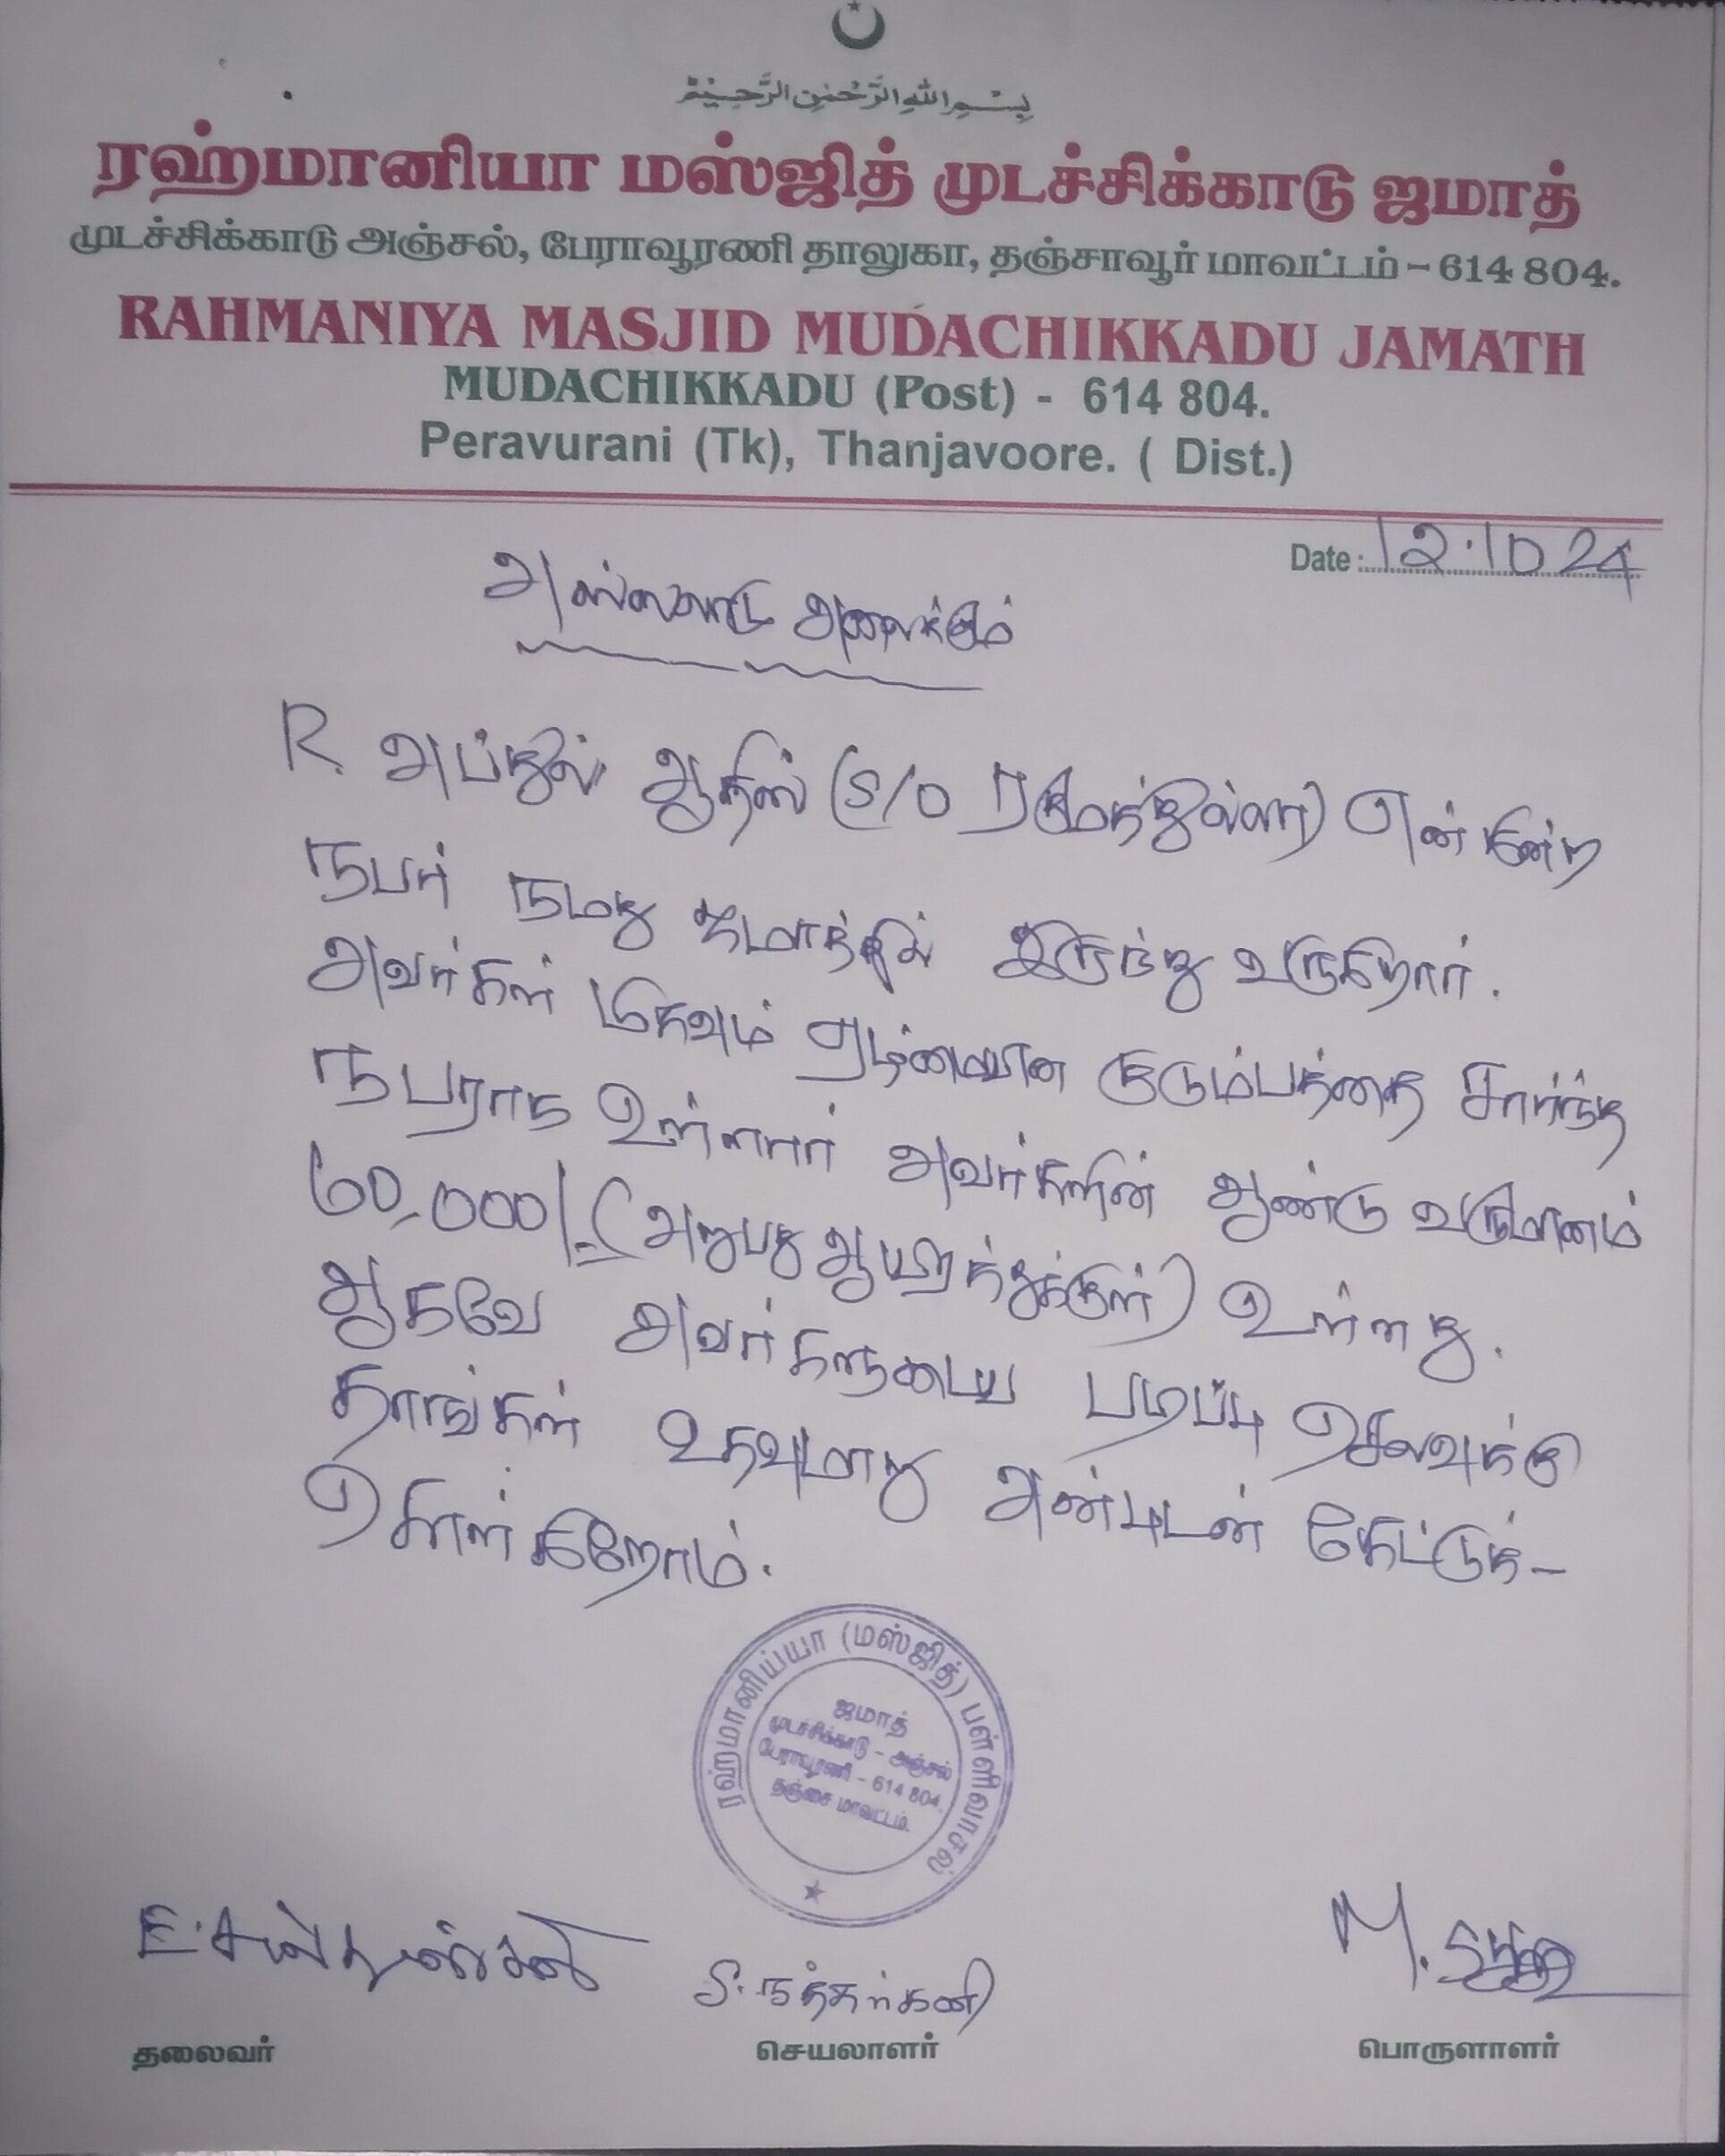 بِسْمِ اللهِ الرَّحْمٰنِ الرَّحِيْمِ
ரஹ்மானியா மஸ்ஜித் முடச்சிக்காடு ஜமாத்
முடச்சிக்காடு அஞ்சல், பேராவூரணி தாலுகா, தஞ்சாவூர் மாவட்டம் – 614 804.
RAHMANIYA MASJID MUDACHIKKADU JAMATH
MUDACHIKKADU (Post) - 614 804.
Peravurani (Tk), Thanjavoore. ( Dist.)
Date : 12.10 24
அஸ்ஸலாமு அலைக்கும்
R. அப்துல் ஆதில் (S/O ரகுமத்துல்லா) என்கின்ற
நபர் நமது ஜமாத்தில் இருந்து வருகிறார்.
அவர்கள் மிகவும் ஏழ்மையான குடும்பத்தை சார்ந்த
நபராக உள்ளார் அவர்களின் ஆண்டு வருமானம்
60,000/- (அறுபது ஆயிரத்துக்குள்) உள்ளது.
ஆகவே அவர்களுடைய படிப்பு செலவுக்கு
தாங்கள் உதவுமாறு அன்புடன் கேட்டுக்-
கொள்கிறோம்.
ரஹ்மானிய்யா (மஸ்ஜித்) பள்ளிவாசல்
ஜமாத்
முடச்சிக்காடு – அஞ்சல்
பேராவூரணி – 614 804.
தஞ்சை மாவட்டம்.
S. நத்தர்கனி
தலைவர் செயலாளர் பொருளாளர்